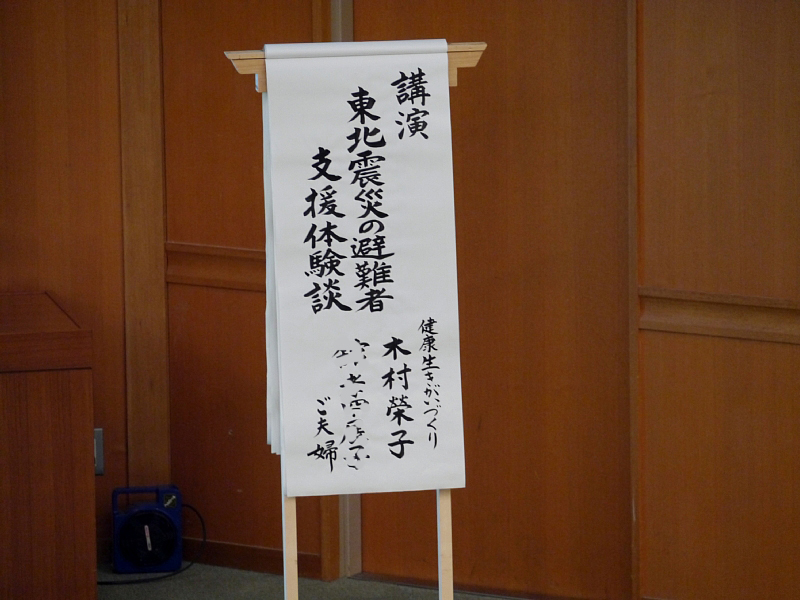 講演
東北震災の避難者
支援体験談
健康生きがいづくり
木村榮子
ご夫婦